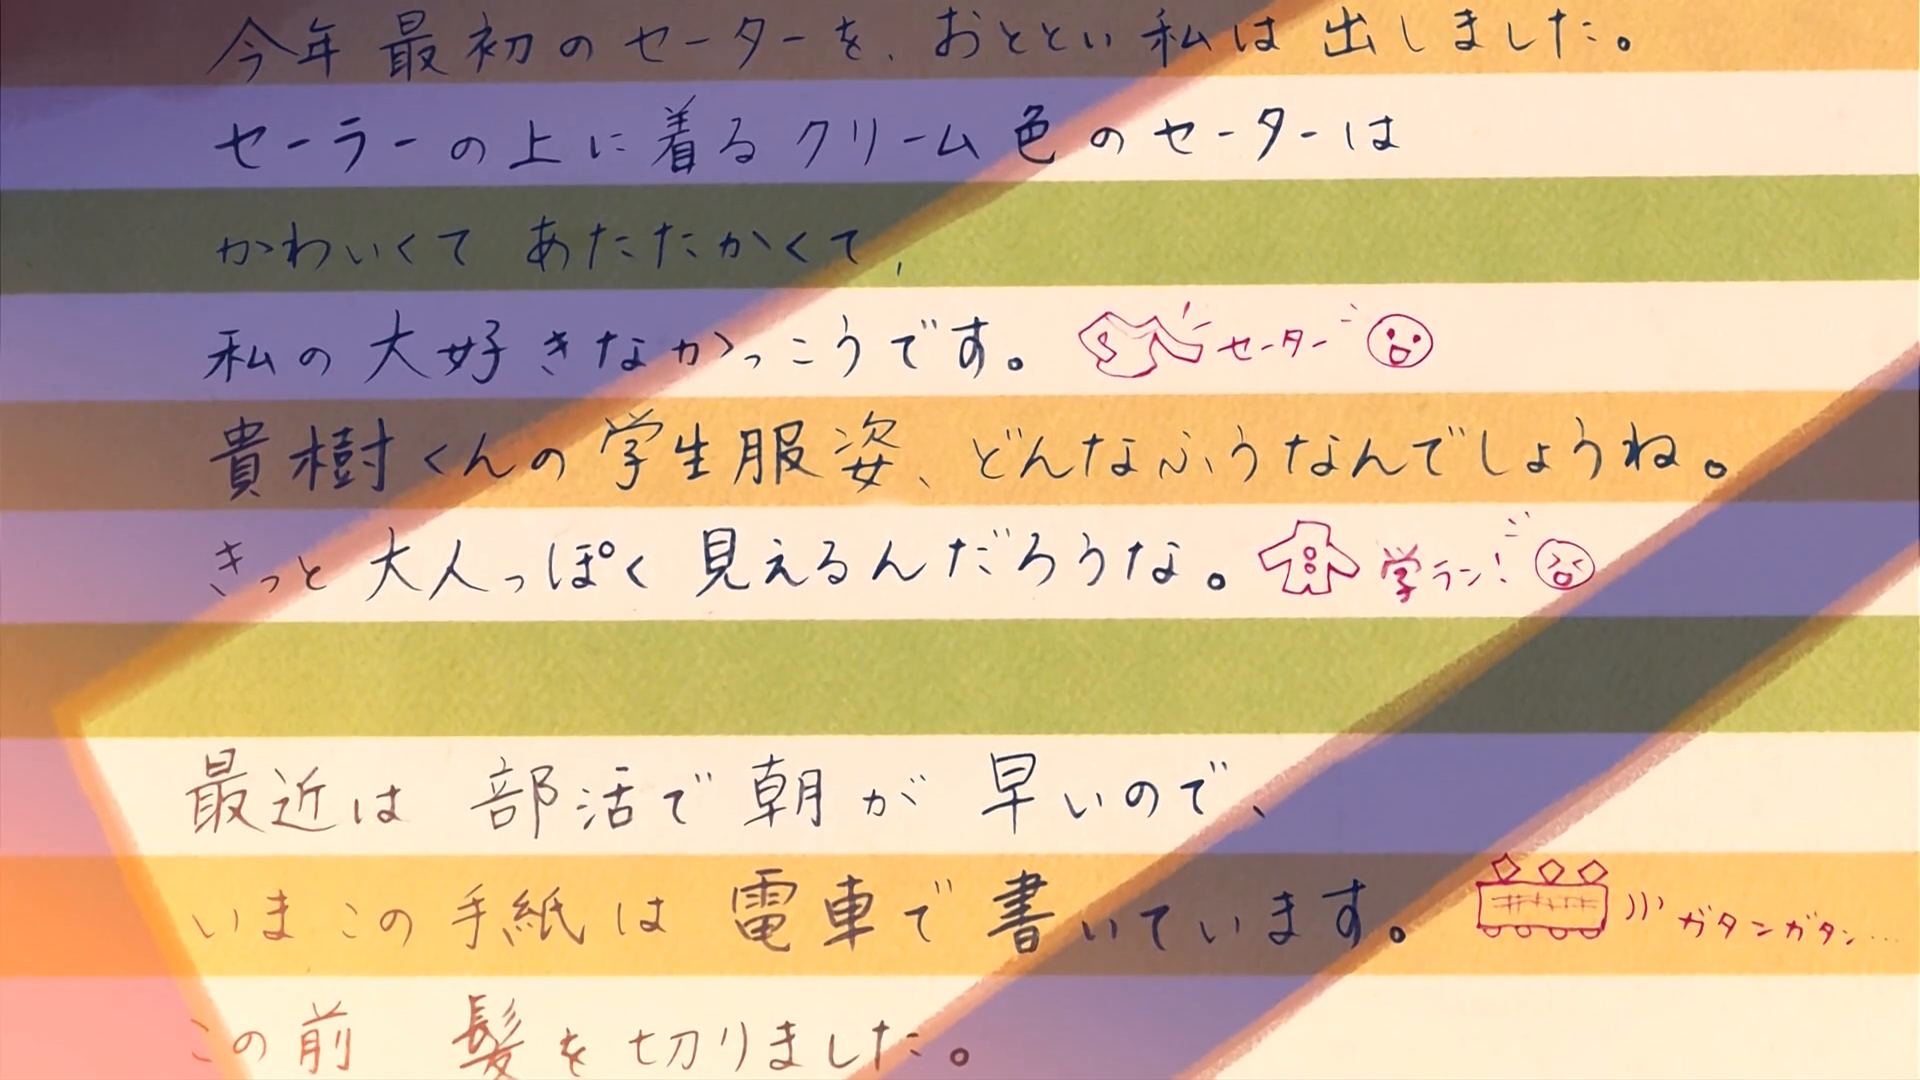 今年最初のセーターを、おととい私は出しました。
セーラーの上に着るクリーム色のセーターは
かわいくてあたたかくて、
私の大好きなかっこうです。 セーター
貴樹くんの学生服姿、どんなふうなんでしょうね。
きっと大人っぽく見えるんだろうな。 学ラン!
最近は部活で朝が早いので、
いまこの手紙は電車で書いています。 ガタンガタン…
この前 髪を切りました。